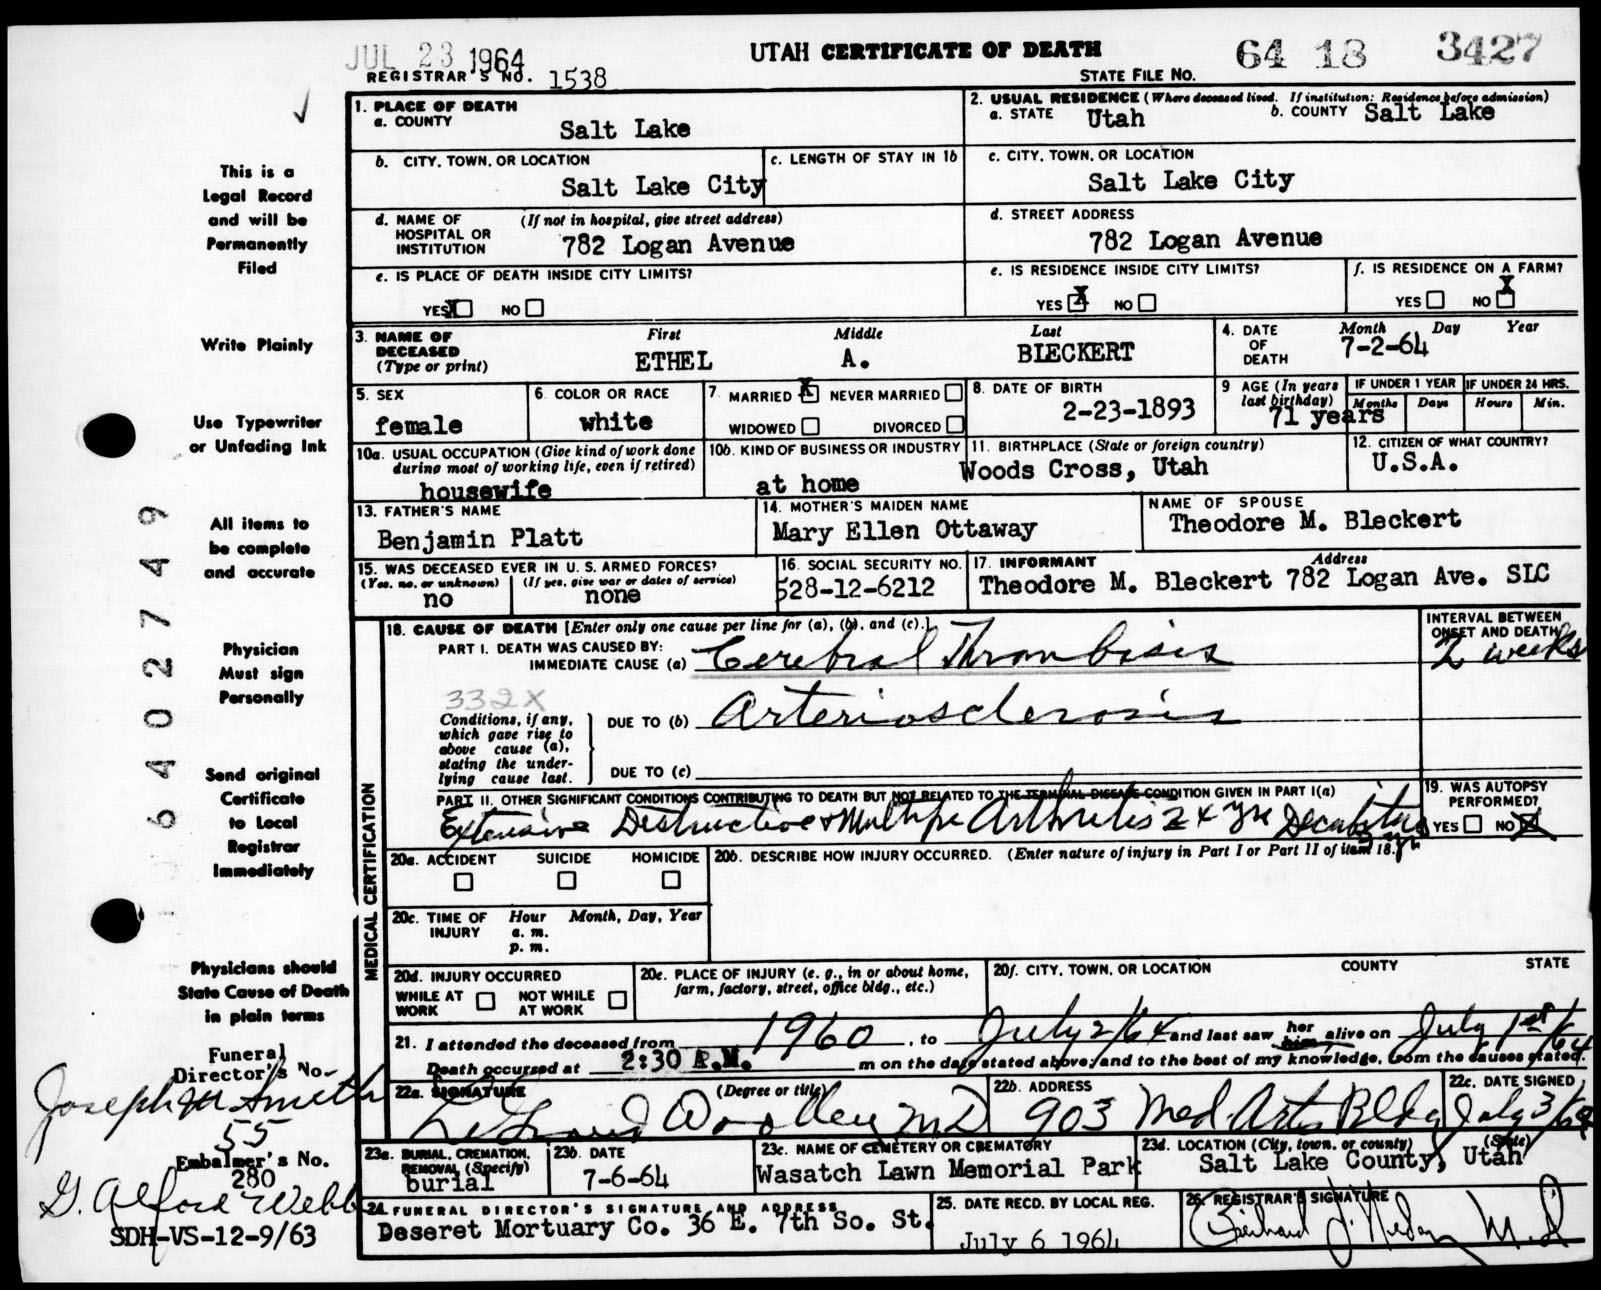 JUL 23 1964
UTAH CERTIFICATE OF DEATH
64 18 3427
REGISTRAR'S NO. 1538
STATE FILE NO.
This is a
Legal Record
and will be
Permanently
Filed
Write Plainly
Use Typewriter
or Unfading Ink
All items to
be complete
and accurate
Physician
Must sign
Personally
Send original
Certificate
to Local
Registrar
Immediately
Physicians should
State Cause of Death
in plain terms
Funeral
Director's No.
Joseph M Smith
55
Embalmer's No.
280
G. Alford Webb
SDH-VS-12-9/63
6402749
1. PLACE OF DEATH
a. COUNTY
Salt Lake
2. USUAL RESIDENCE (Where deceased lived. If institution: Residence before admission)
a. STATE Utah b. COUNTY Salt Lake
b. CITY, TOWN, OR LOCATION
Salt Lake City
c. LENGTH OF STAY IN 1b
c. CITY, TOWN, OR LOCATION
Salt Lake City
d. NAME OF HOSPITAL OR INSTITUTION (If not in hospital, give street address)
782 Logan Avenue
d. STREET ADDRESS
782 Logan Avenue
e. IS PLACE OF DEATH INSIDE CITY LIMITS?
YES X NO
e. IS RESIDENCE INSIDE CITY LIMITS?
YES X NO
f. IS RESIDENCE ON A FARM?
YES NO X
3. NAME OF DECEASED (Type or print)
First Middle Last
ETHEL A. BLECKERT
4. DATE OF DEATH
Month Day Year
7-2-64
5. SEX
female
6. COLOR OR RACE
white
7. MARRIED X NEVER MARRIED
WIDOWED DIVORCED
8. DATE OF BIRTH
2-23-1893
9 AGE (In years last birthday)
71 years
IF UNDER 1 YEAR
Months Days
IF UNDER 24 HRS.
Hours Min.
10a. USUAL OCCUPATION (Give kind of work done during most of working life, even if retired)
housewife
10b. KIND OF BUSINESS OR INDUSTRY
at home
11. BIRTHPLACE (State or foreign country)
Woods Cross, Utah
12. CITIZEN OF WHAT COUNTRY?
U.S.A.
13. FATHER'S NAME
Benjamin Platt
14. MOTHER'S MAIDEN NAME
Mary Ellen Ottaway
NAME OF SPOUSE
Theodore M. Bleckert
15. WAS DECEASED EVER IN U. S. ARMED FORCES?
(Yes, no, or unknown) (If yes, give war or dates of service)
no none
16. SOCIAL SECURITY NO.
528-12-6212
17. INFORMANT Address
Theodore M. Bleckert 782 Logan Ave. SLC
MEDICAL CERTIFICATION
18. CAUSE OF DEATH [Enter only one cause per line for (a), (b), and (c).]
PART I. DEATH WAS CAUSED BY:
IMMEDIATE CAUSE (a) Cerebral Thrombosis
INTERVAL BETWEEN ONSET AND DEATH
2 weeks
332X
Conditions, if any, which gave rise to above cause (a), stating the underlying cause last.
DUE TO (b) Arteriosclerosis
DUE TO (c)
PART II. OTHER SIGNIFICANT CONDITIONS CONTRIBUTING TO DEATH BUT NOT RELATED TO THE TERMINAL DISEASE CONDITION GIVEN IN PART I(a)
Extensive Destructive & Multiple Arthritis 2 + yr Decubitus
19. WAS AUTOPSY PERFORMED?
YES NO X
20a. ACCIDENT SUICIDE HOMICIDE
20b. DESCRIBE HOW INJURY OCCURRED. (Enter nature of injury in Part I or Part II of item 18.)
20c. TIME OF INJURY Hour Month, Day, Year
a. m.
p. m.
20d. INJURY OCCURRED
WHILE AT WORK NOT WHILE AT WORK
20e. PLACE OF INJURY (e. g., in or about home, farm, factory, street, office bldg., etc.)
20f. CITY, TOWN, OR LOCATION COUNTY STATE
21. I attended the deceased from 1960, to July 2/64 and last saw her him alive on July 1st/64
Death occurred at 2:30 A.M. m on the date stated above; and to the best of my knowledge, from the causes stated.
22a. SIGNATURE (Degree or title)
LeGrand Woolley MD
22b. ADDRESS
903 Med. Arts Bldg
22c. DATE SIGNED
July 3/64
23a. BURIAL, CREMATION, REMOVAL (Specify)
burial
23b. DATE
7-6-64
23c. NAME OF CEMETERY OR CREMATORY
Wasatch Lawn Memorial Park
23d. LOCATION (City, town, or county) (State)
Salt Lake County, Utah
24. FUNERAL DIRECTOR'S SIGNATURE AND ADDRESS
Deseret Mortuary Co. 36 E. 7th So. St.
25. DATE RECD. BY LOCAL REG.
July 6 1964
26. REGISTRAR'S SIGNATURE
M.D.